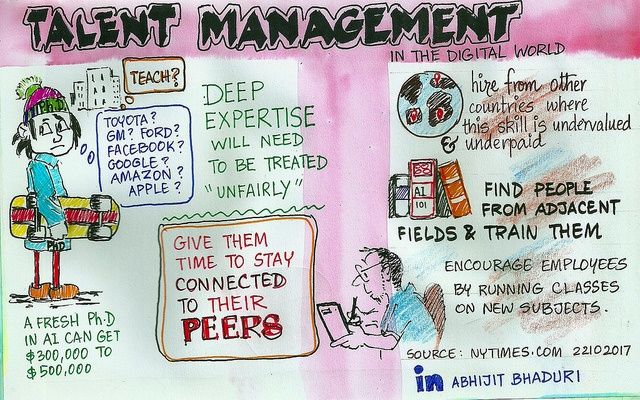 TALENT MANAGEMENT
IN THE DIGITAL WORLD
TEACH?
Ph.D
TOYOTA?
GM? FORD?
FACEBOOK?
GOOGLE?
AMAZON?
APPLE?
PhD
A FRESH Ph.D
IN AI CAN GET
$300,000 TO
$500,000
DEEP
EXPERTISE
WILL NEED
TO BE TREATED
"UNFAIRLY"
GIVE THEM
TIME TO STAY
CONNECTED
TO THEIR
PEERS
hire from other
countries where
this skill is undervalued
& underpaid
AI
101
FIND PEOPLE
FROM ADJACENT
FIELDS & TRAIN THEM
ENCOURAGE EMPLOYEES
BY RUNNING CLASSES
ON NEW SUBJECTS.
SOURCE: NYTIMES.COM 22102017
in ABHIJIT BHADURI